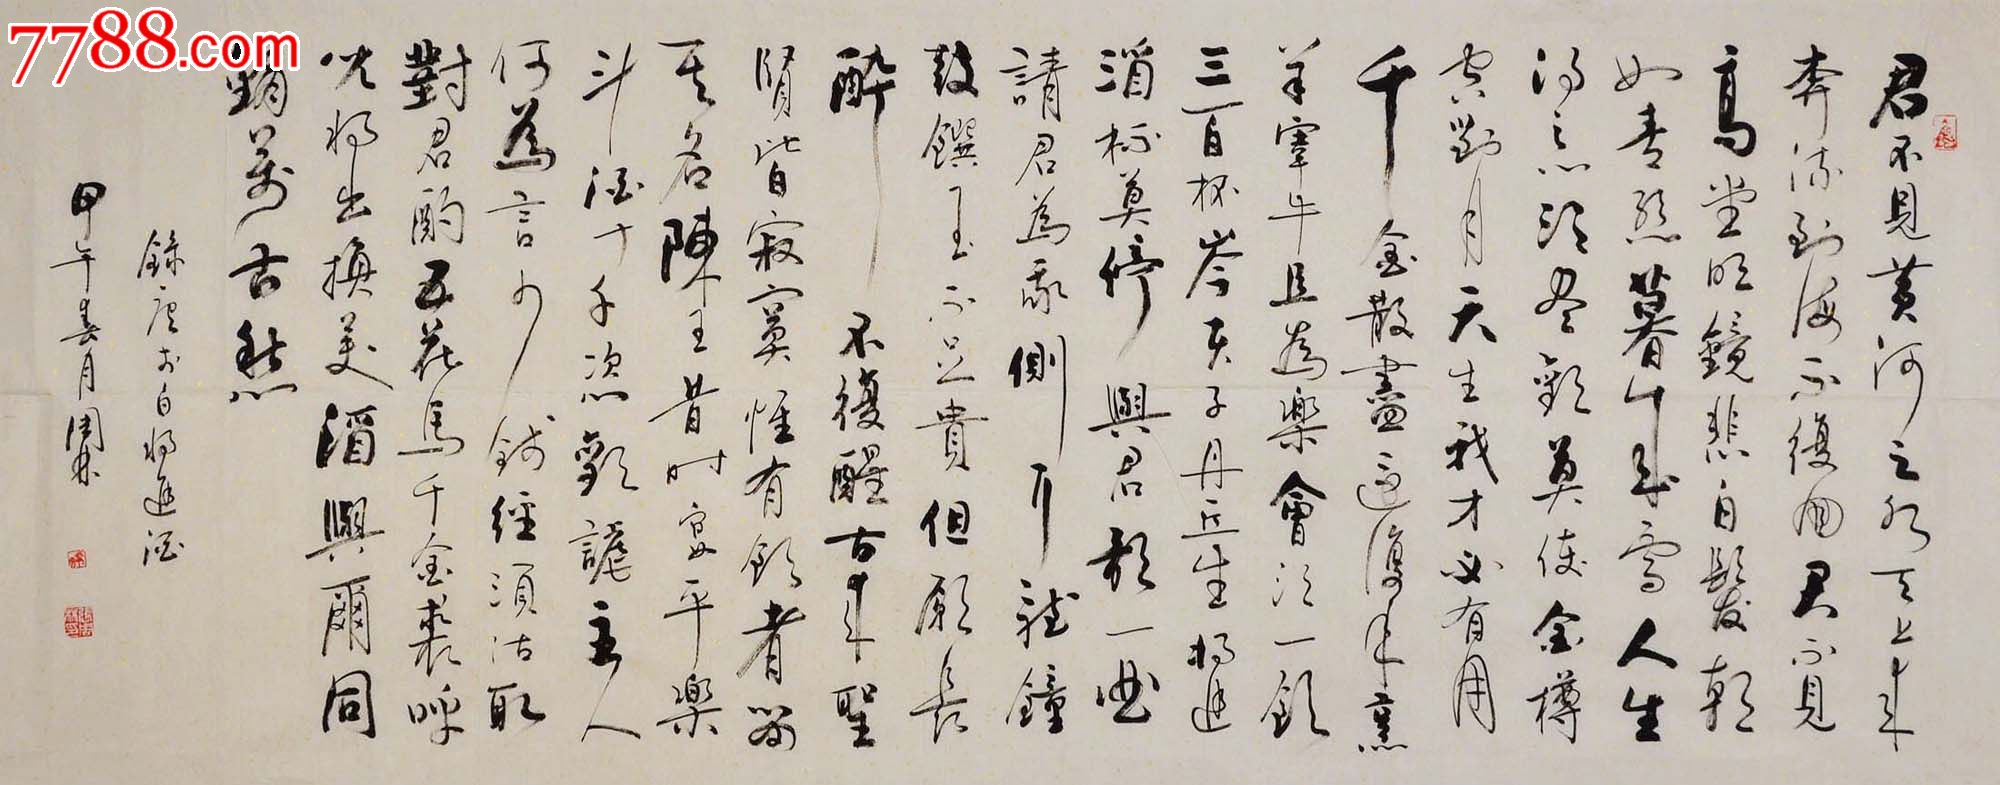 7788.com
君不見黃河之水天上來
奔流到海不復回君不見
高堂明鏡悲白髮朝
如青絲暮成雪人生
得意須盡歡莫使金樽
空對月天生我才必有用
千金散盡還復來烹
羊宰牛且為樂會須一飲
三百杯岑夫子丹丘生將進
酒杯莫停與君歌一曲
請君為我側耳聽鐘
鼓饌玉不足貴但願長
醉不復醒古來聖
賢皆寂寞惟有飲者留
其名陳王昔時宴平樂
斗酒十千恣歡謔主人
何為言少錢經須沽取
對君酌五花馬千金裘呼
兒將出換美酒與爾同
銷萬古愁
錄唐李白將進酒
甲午春月周林